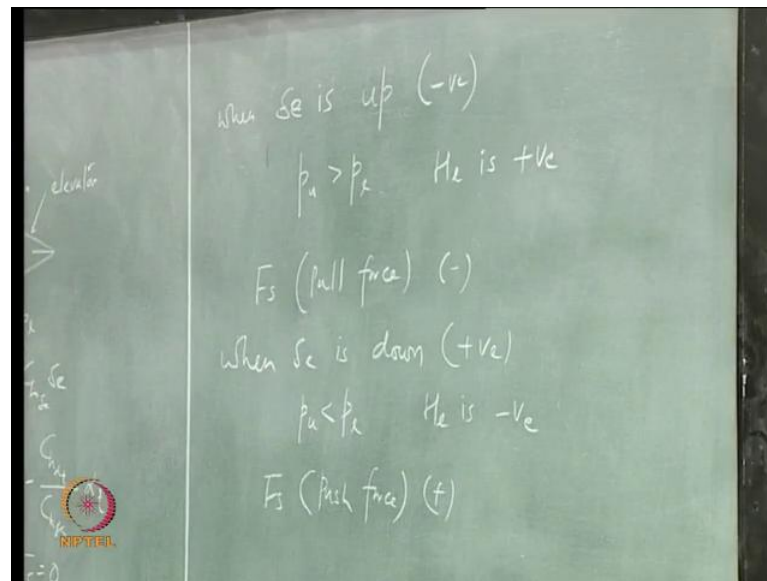 elevator
δe
C
= 0
when δe is up (-ve)
pu > pl He is +ve
Fs (Pull force) (-)
when δe is down (+ve)
pu < pl He is -ve
Fs (Push force) (+)
NPTEL